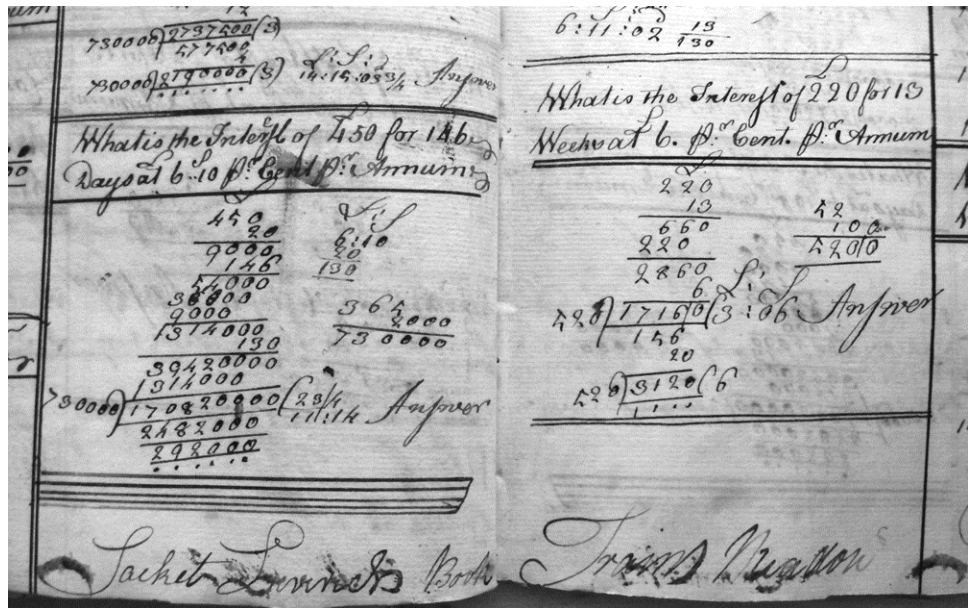 12
730000)2737500(3
577500
4
730000)2190000(3)
L : S : d
14:15:03 3/4 Answer
What is the Interest of £450 for 146
Days at 6..10 Pr. Cent Pr. Annum
£
450
20
9000
146
54000
36000
9000
1314000
130
39420000
1314000
730000)170820000(23/4
11:14 Answer
2482000
292000
L : S
6:10
20
130
365
2000
730000
Book
6:11:02 13/130
What is the Interest of £220 for 13
Weeks at 6. Pr. Cent. Pr. Annum
£
220
13
660
220
2860
6
520)17160(3:06 Answer
L : S
156
20
520)3120(6
52
100
5200